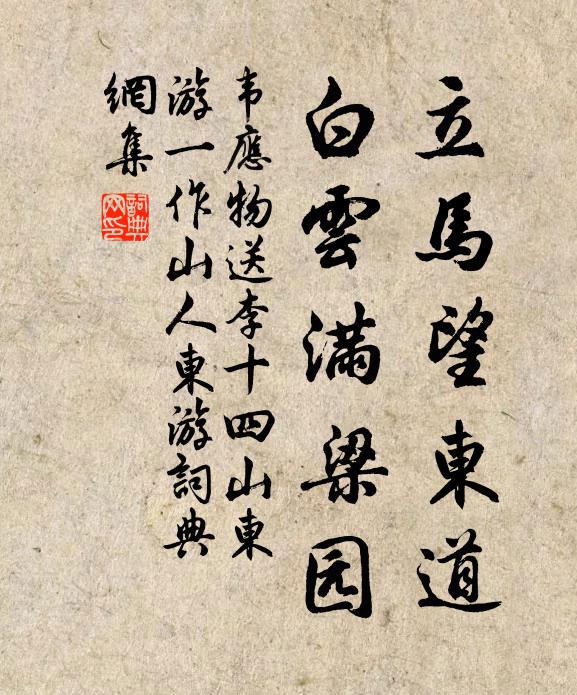 立馬望東道
白雲满梁园
韦應物送李十四山東
游一作山人東游詞典
網集
詞典網印